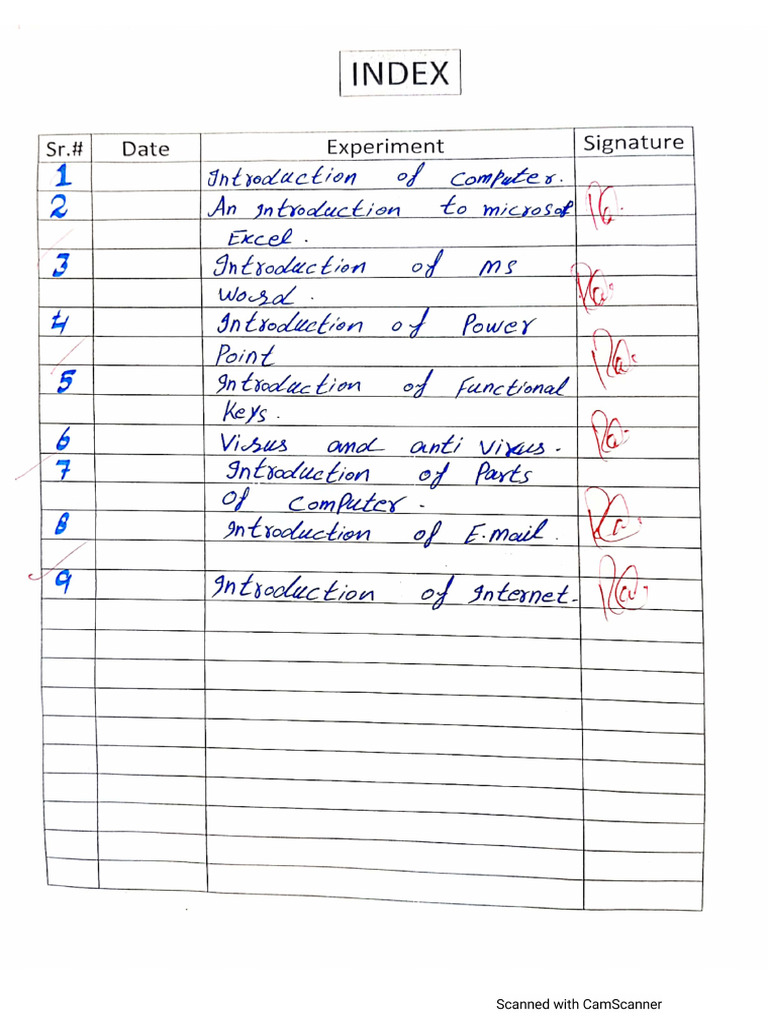 INDEX
Sr.# Date Experiment Signature
1 Introduction of computer.
2 An introduction to microsof
Excel.
3 Introduction of MS
Word.
4 Introduction of Power
Point
5 Introduction of Functional
Keys.
6 Virus and anti virus.
7 Introduction of Parts
Of Computer.
8 Introduction of E.mail.
9 Introduction of Internet.
Scanned with CamScanner